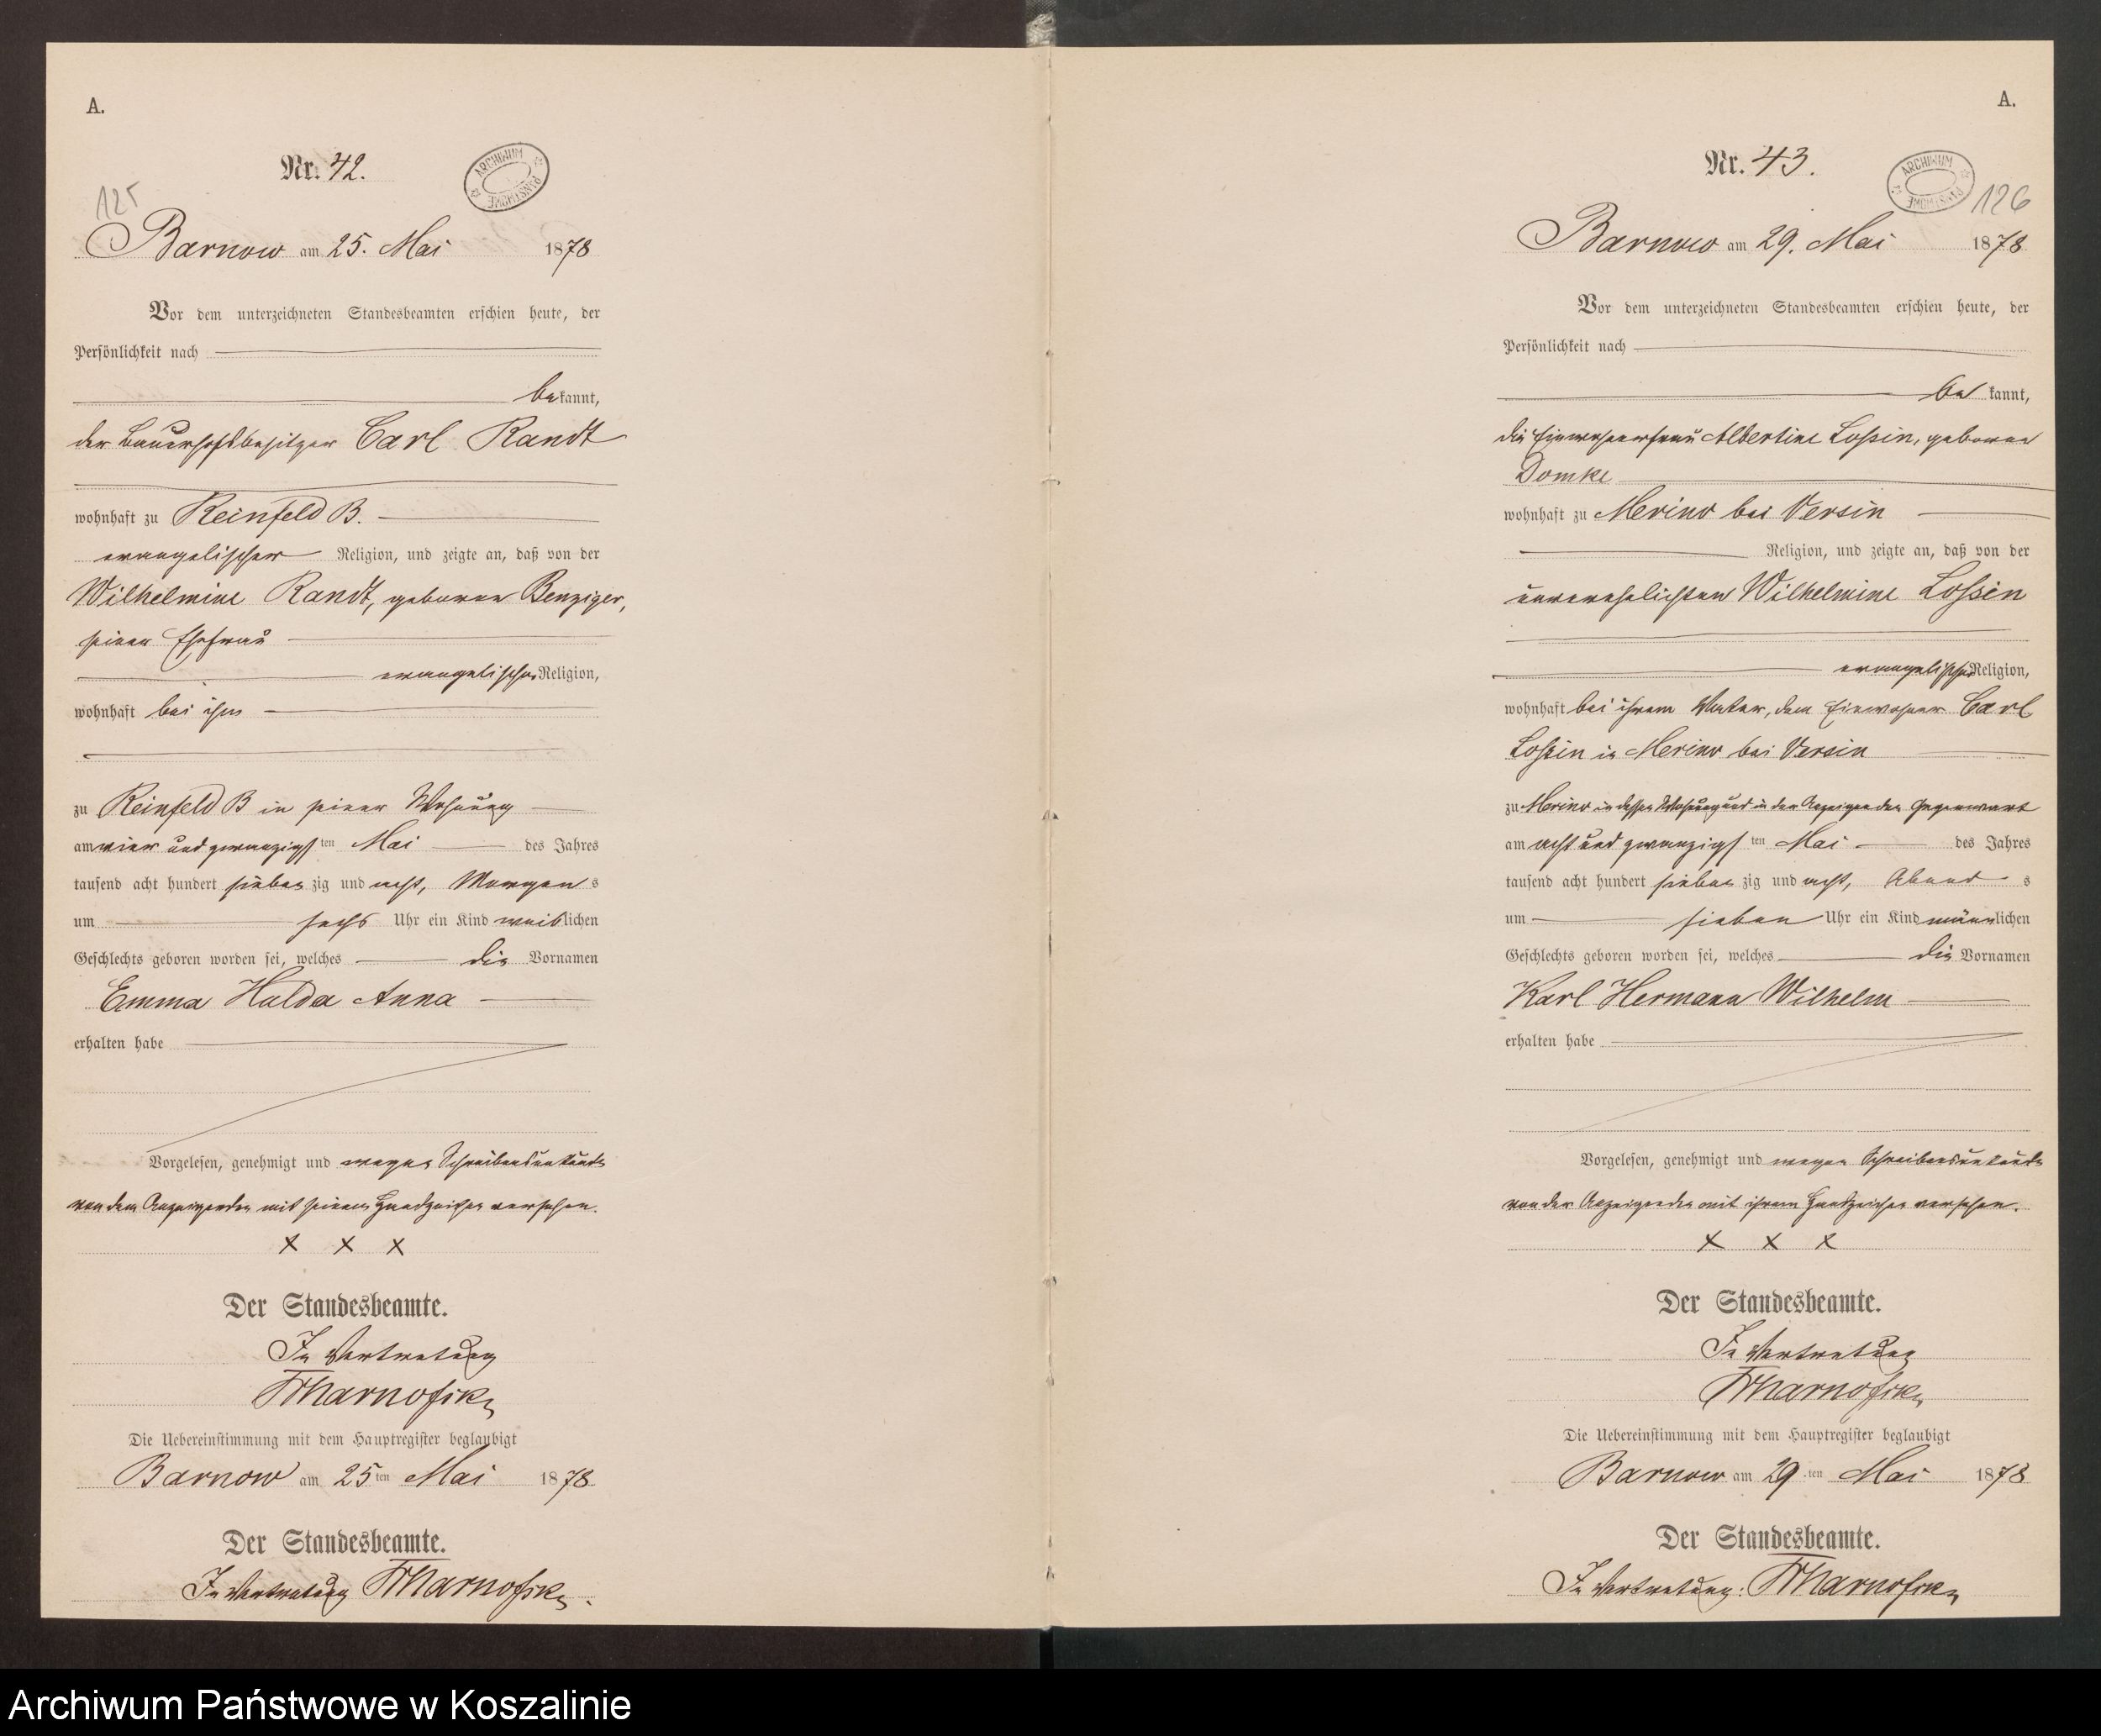 A.
Nr. 42.
ARCHIWUM PAŃSTWOWE
125
Barnow am 25. Mai 1878
Vor dem unterzeichneten Standesbeamten erschien heute, der
Persönlichkeit nach
bekannt,
der Bauerhofsbesitzer Carl Randt
wohnhaft zu Reinfeld B.
evangelischer Religion, und zeigte an, daß von der
Wilhelmine Randt, geborene Benziger,
seiner Ehefrau
evangelischer Religion,
wohnhaft bei ihm
zu Reinfeld B in seiner Wohnung
am vier und zwanzigsten Mai des Jahres
tausend acht hundert siebenzig und acht, Morgens
um sechs Uhr ein Kind weiblichen
Geschlechts geboren worden sei, welches die Vornamen
Emma Hulda Anna
erhalten habe
Vorgelesen, genehmigt und wegen Schreibensunkunde
von dem Anzeigenden mit seinem Handzeichen versehen.
x x x
Der Standesbeamte.
In Vertretung
Die Uebereinstimmung mit dem Hauptregister beglaubigt
Barnow am 25ten Mai 1878.
Der Standesbeamte.
In Vertretung
A.
Nr. 43.
ARCHIWUM PAŃSTWOWE
126
Barnow am 29. Mai 1878
Vor dem unterzeichneten Standesbeamten erschien heute, der
Persönlichkeit nach
bekannt,
die Einwohnerfrau Albertine Loßin, geborene
Domke
wohnhaft zu Merino bei Versin
Religion, und zeigte an, daß von der
unverehelichten Wilhelmine Loßin
evangelischer Religion,
wohnhaft bei ihrem Vater, dem Einwohner Carl
Loßin in Merino bei Versin
zu Merino in dessen Wohnung und in der Anzeigenden Gegenwart
am acht und zwanzigsten Mai des Jahres
tausend acht hundert siebenzig und acht, Abends
um sieben Uhr ein Kind männlichen
Geschlechts geboren worden sei, welches die Vornamen
Karl Hermann Wilhelm
erhalten habe
Vorgelesen, genehmigt und wegen Schreibensunkunde
von der Anzeigenden mit ihrem Handzeichen versehen.
x x x
Der Standesbeamte.
In Vertretung
Die Uebereinstimmung mit dem Hauptregister beglaubigt
Barnow am 29.ten Mai 1878
Der Standesbeamte.
In Vertretung:
Archiwum Państwowe w Koszalinie